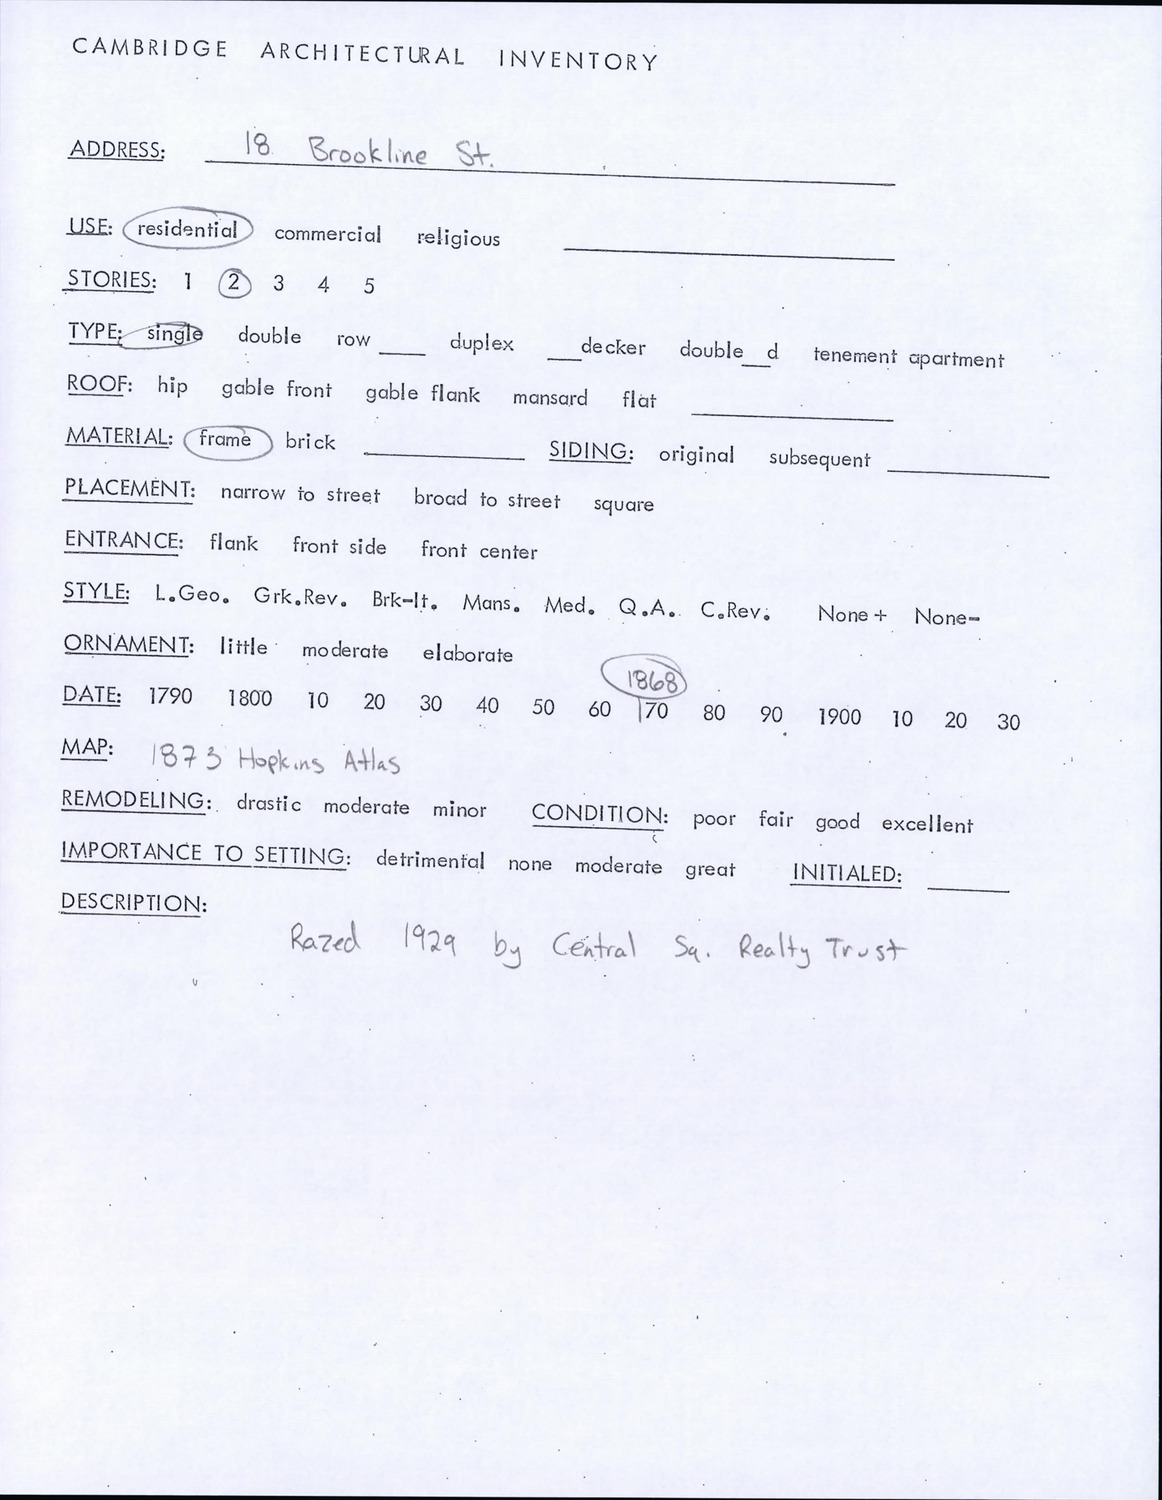 CAMBRIDGE ARCHITECTURAL INVENTORY
ADDRESS: 18 Brookline St.
USE: residential commercial religious
STORIES: 1 2 3 4 5
TYPE: single double row ___ duplex ___decker double__d tenement apartment
ROOF: hip gable front gable flank mansard flat
MATERIAL: frame brick SIDING: original subsequent
PLACEMENT: narrow to street broad to street square
ENTRANCE: flank front side front center
STYLE: L.Geo. Grk.Rev. Brk-It. Mans. Med. Q.A. C.Rev. None+ None-
ORNAMENT: little moderate elaborate
1868
DATE: 1790 1800 10 20 30 40 50 60 70 80 90 1900 10 20 30
MAP: 1873 Hopkins Atlas
REMODELING: drastic moderate minor CONDITION: poor fair good excellent
IMPORTANCE TO SETTING: detrimental none moderate great INITIALED:
DESCRIPTION:
Razed 1929 by Central Sq. Realty Trust